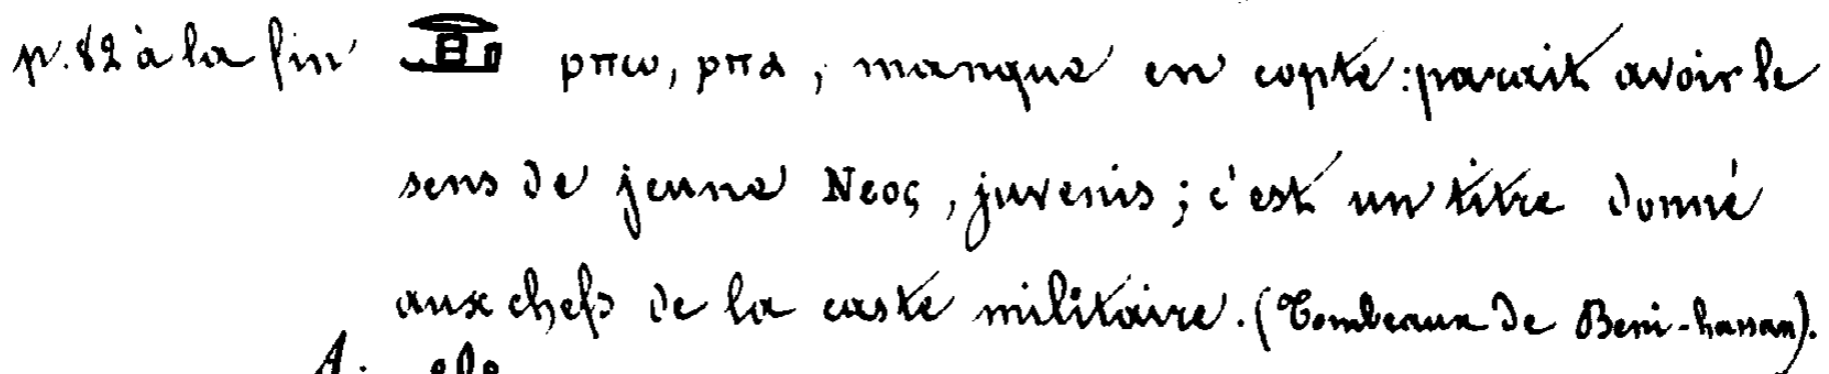 p. 82 à la fin 𓂋𓊪𓉔 ⲣⲡⲱ, ⲣⲡⲁ, manque en copte : parait avoir le
sens de jeune Νεος, juvenis ; c'est un titre donné
aux chefs de la caste militaire. (Tombeaux de Beni-hassan).